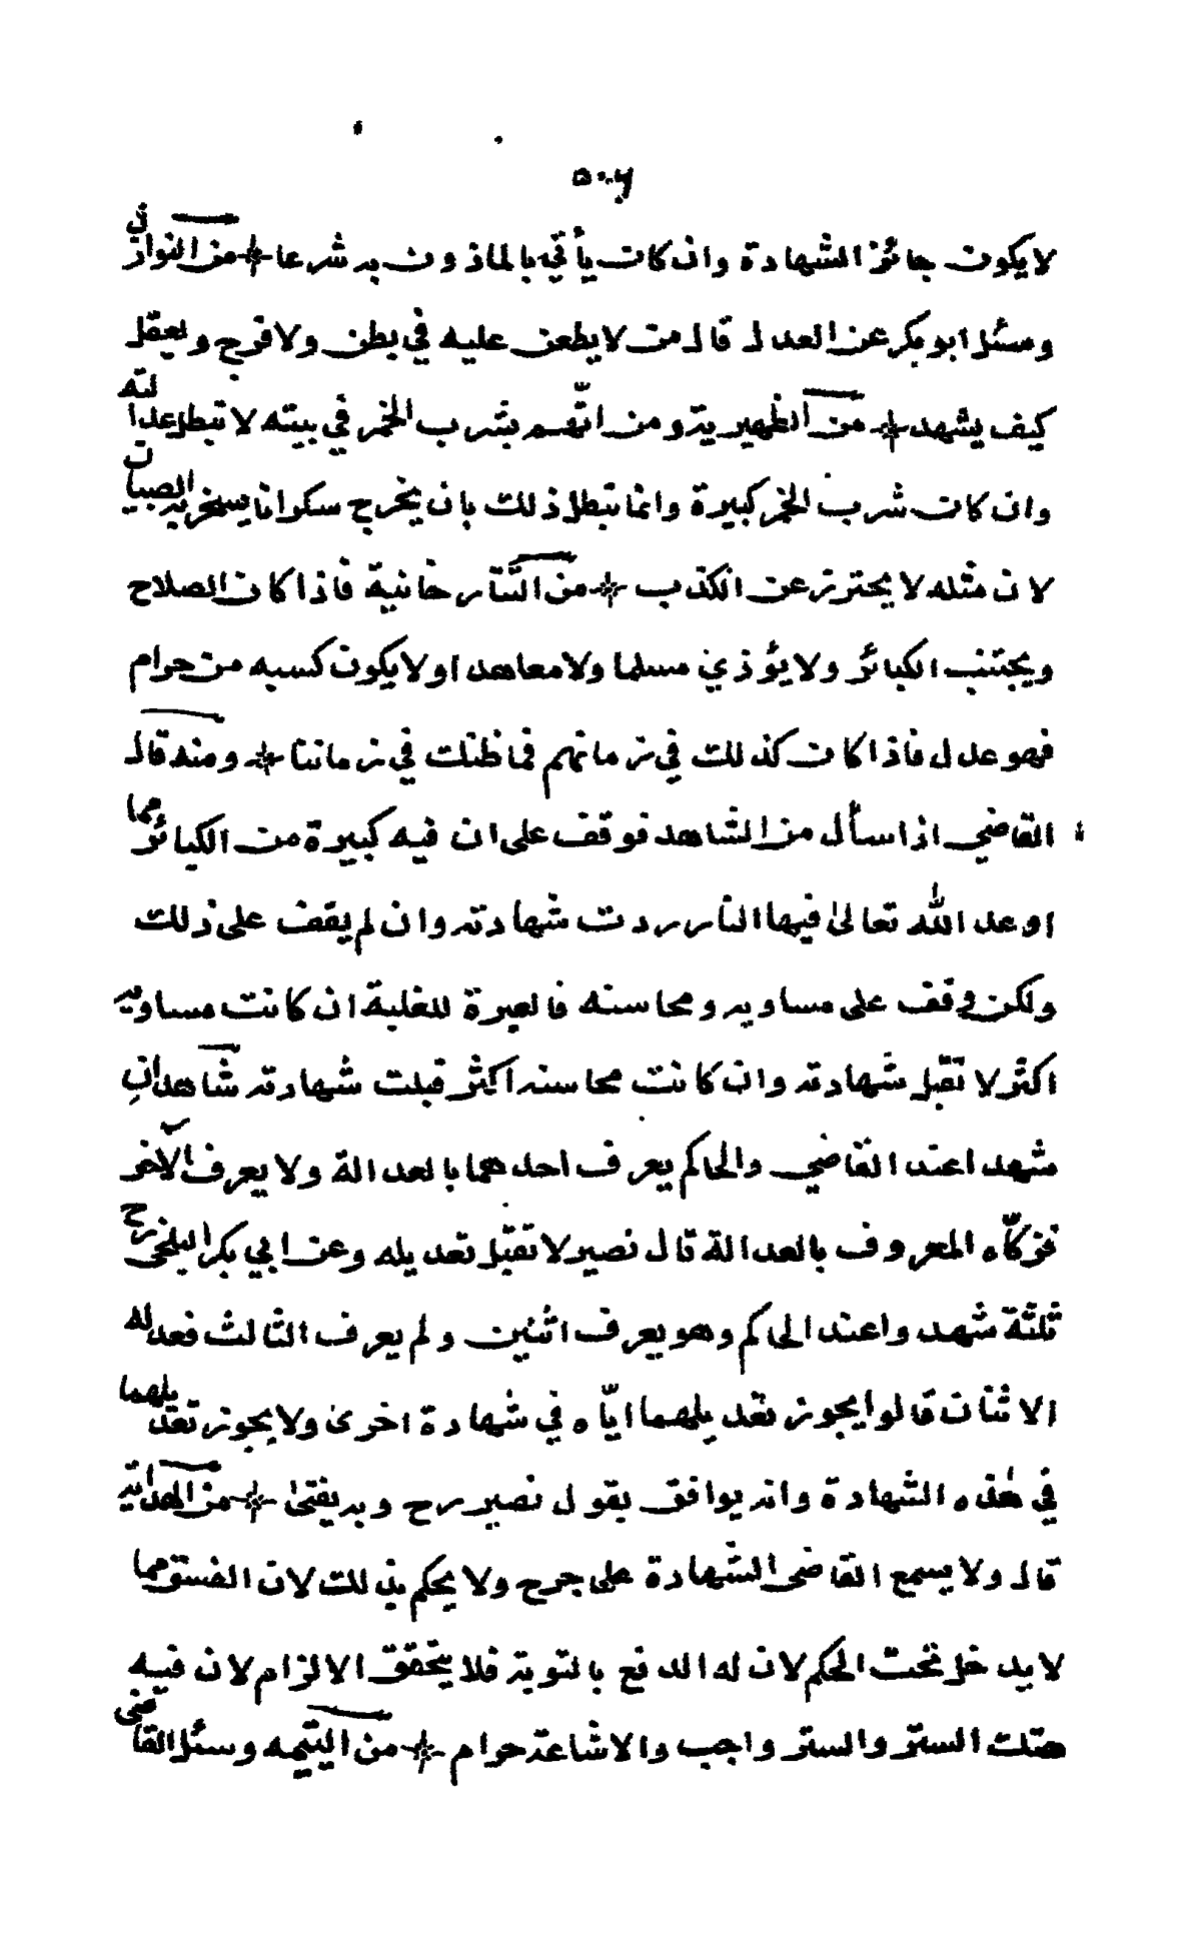 ٥٠٦
لا يكون جائز الشهادة وان كان يأتي بالماذون به شرعا * من النوازل
وسئل ابو بكر عن العدل قال من لا يطعن عليه في بطن ولا فرج ويعقل
كيف يشهد * من الظهيرية ومن اتّهم بشرب الخمر في بيته لا تبطل عدالته
وان كان شرب الخمر كبيرة وانما تبطل ذلك بان يخرج سكرانا يسخر به الصبيان
لان مثله لا يحترز عن الكذب * من التتارخانية فاذا كان الصلاح
ويجتنب الكبائر ولا يؤذي مسلما ولا معاهدا ولا يكون كسبه من حرام
فهو عدل فاذا كان كذلك في زمانهم فما ظنك في زماننا * ومنه قال
القاضي اذا سأل من الشاهد فوقف على ان فيه كبيرة من الكبائر مما
اوعد الله تعالى فيها النار ردت شهادته وان لم يقف على ذلك
ولكن وقف على مساويه ومحاسنه فالعبرة للغلبة ان كانت مساويه
اكثر لا تقبل شهادته وان كانت محاسنه اكثر قبلت شهادته شاهدان
شهدا عند القاضي والحاكم يعرف احدهما بالعدالة ولا يعرف الآخر
فزكّاه المعروف بالعدالة قال نصير لا تقبل تعديله وعن ابي بكر البلخي رح
ثلثة شهدوا عند الحاكم وهو يعرف اثنين ولم يعرف الثالث فعدله
الاثنان قالوا يجوز تعديلهما ايّاه في شهادة اخرى ولا يجوز تعديلهما
في هذه الشهادة وانه يوافق بقول نصير رح وبه يفتى * من الهداية
قال ولا يسمع القاضى الشهادة على جرح ولا يحكم بذلك لان الفسق مما
لا يدخل تحت الحكم لان له الدفع بالتوبة فلا يتحقق الالزام لان فيه
هتك الستر والستر واجب والاشاعة حرام * من اليتيمه وسئل القاضى